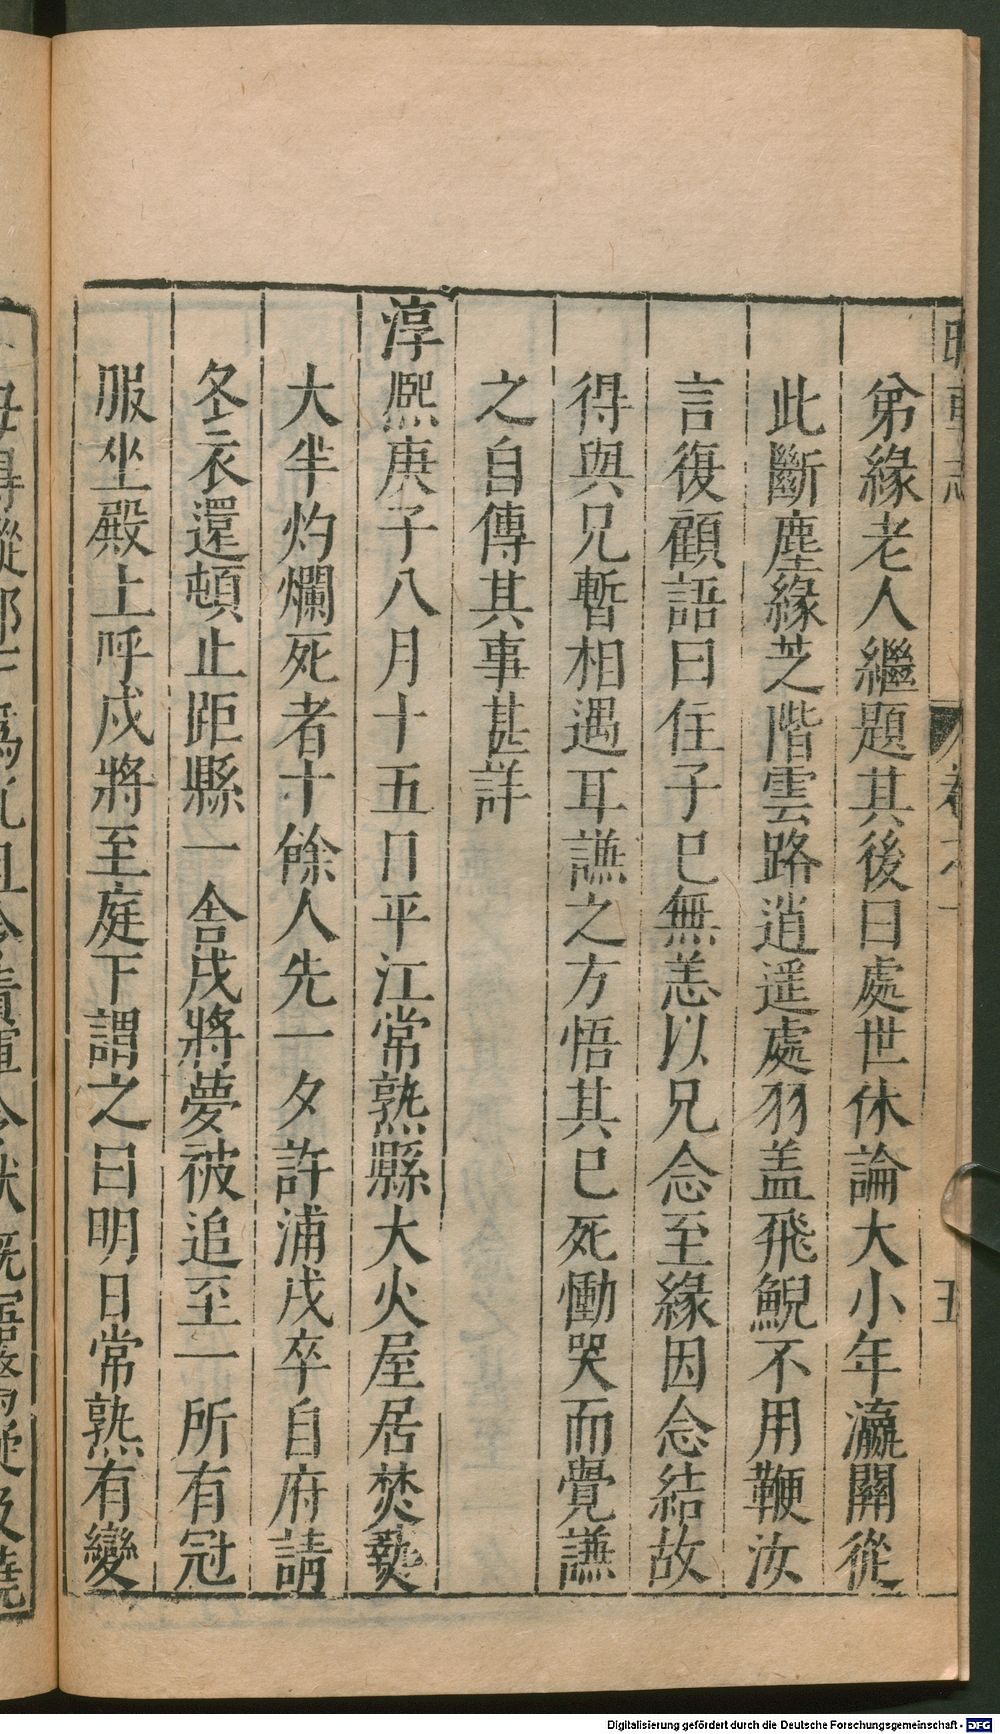 睽車志
卷之一
五
弟緣老人繼題其後曰處世休論大小年瀛關從
此斷塵緣芝階雲路逍遥處羽盖飛鯢不用鞭汝
言復顧語曰住子已無恙以兄念至緣因念結故
得與兄暫相遇耳譙之方悟其已死慟哭而覺譙
之自傳其事甚詳
淳熙庚子八月十五日平江常熟縣大火屋居焚爇
大半灼爛死者十餘人先一夕許浦戍卒自府請
冬衣還頓止距縣一舍戍將夢被追至一所有冠
服坐殿上呼戍將至庭下謂之曰明日常熟有變
Digitalisierung gefördert durch die Deutsche Forschungsgemeinschaft - DFG